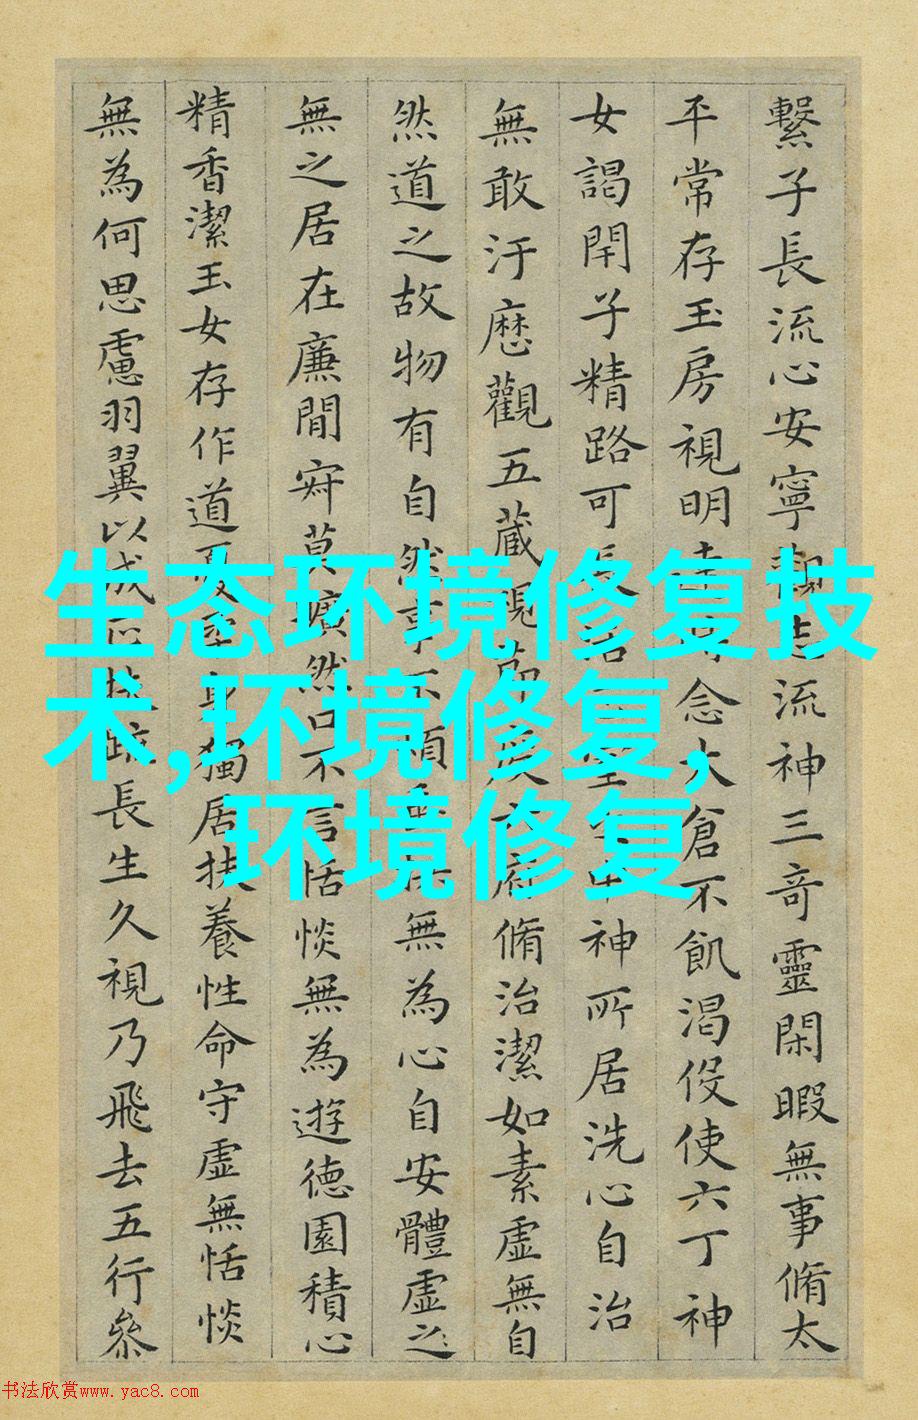 繫子長流心安寧觀志流神三奇靈閑暇無事脩太
平常存玉房視明達時念大倉不飢渴伇使六丁神
女謁閇子精路可長活正室之中神所居洗心自治
無敢汙歷觀五藏視節度六府脩治潔如素虛無自
然道之故物有自然事不煩垂拱無為心自安體虛之
無之居在廉間寂莫廣然口不言恬惔無為遊德園積心
精香潔玉女存作道憂柔身獨居扶養性命守虛無恬惔
無為何思慮羽翼以成正扶疏長生久視乃飛去五行參
生态环境修复技
术,环境修复,
环境修复
书法欣赏www.yac8.com